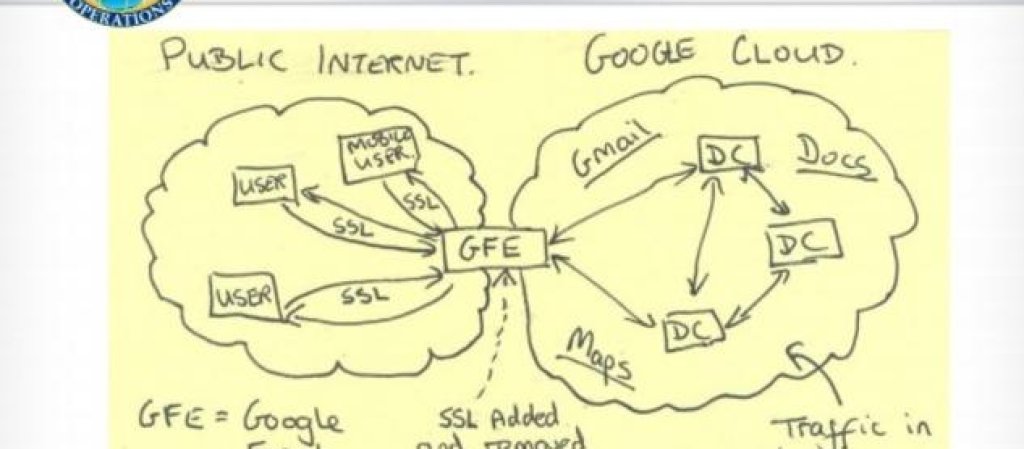 OPERATIONS
PUBLIC INTERNET.
GOOGLE CLOUD.
MOBILE
USER.
USER
SSL
SSL
GFE
USER
SSL
Gmail
DC
Docs
DC
DC
Maps
GFE = Google
SSL Added
and removed
Traffic in